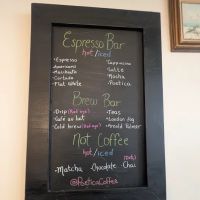 Espresso Bar
hot/iced
• Espresso • Cappuccino
• Americano • Latte
• Macchiato • Mocha
• Cortado • Poetica
• Flat White
Brew Bar
• Drip • Teas
• Café au lait • London Fog
• Cold brew • Arnold Palmer
Not Coffee
hot/iced
• Matcha • Chocolate • Chai
@PoeticaCoffee